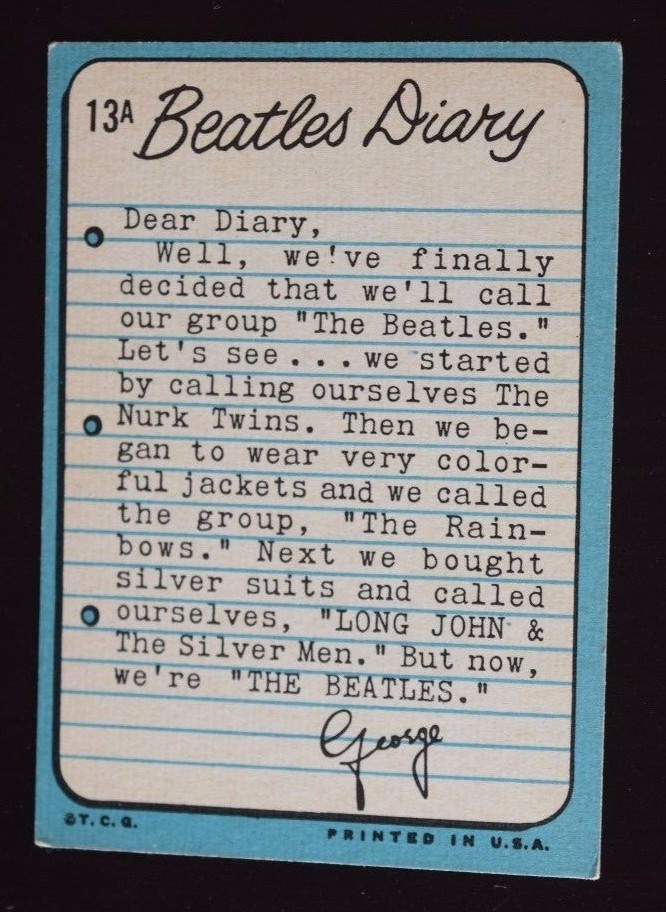 13A Beatles Diary
Dear Diary,
Well, we've finally
decided that we'll call
our group "The Beatles."
Let's see...we started
by calling ourselves The
Nurk Twins. Then we be-
gan to wear very color-
ful jackets and we called
the group, "The Rain-
bows." Next we bought
silver suits and called
ourselves, "LONG JOHN &
The Silver Men." But now,
we're "THE BEATLES."
George
©T.C.G.
PRINTED IN U.S.A.